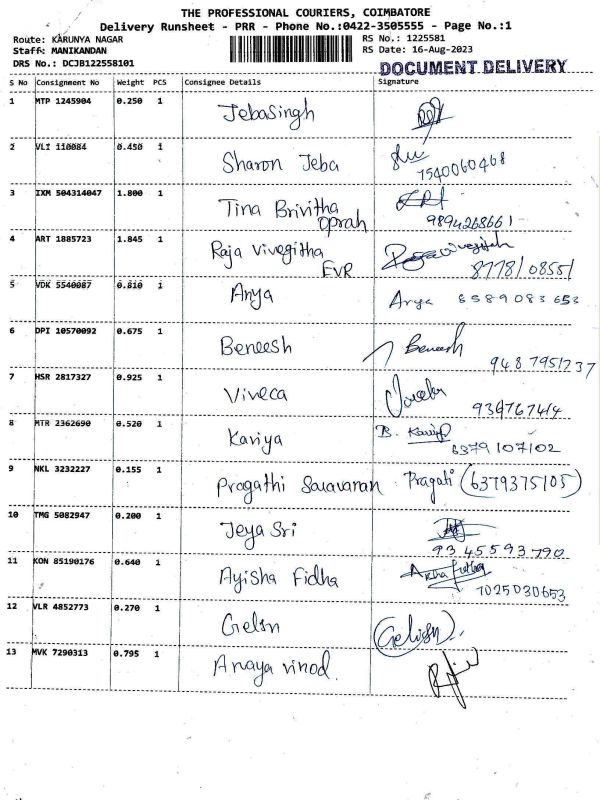 THE PROFESSIONAL COURIERS, COIMBATORE
Delivery Runsheet - PRR - Phone No.:0422-3505555 - Page No.:1
Route: KARUNYA NAGAR RS No.: 1225581
Staff: MANIKANDAN RS Date: 16-Aug-2023
DRS No.: DCJB122558101 DOCUMENT DELIVERY
S No Consignment No Weight PCS Consignee Details Signature
1 MTP 1245904 0.250 1 Jebasingh
2 VLI 110084 0.450 1 Sharon Jeba
7540060468
3 IXM 504314047 1.800 1 Tina Brivitha
Oprah 9894268661
4 ART 1885723 1.845 1 Raja Vivegitha
EVR 8778108551
5 VDK 5540087 0.810 1 Anya Arya 8589083653
6 DPI 10570092 0.675 1 Beneesh Beneesh
9487951237
7 HSR 2817327 0.925 1 Viveca
936767414
8 MTR 2362690 0.520 1 Kaviya B. Kaviya
6379107102
9 NKL 3232227 0.155 1 Pragathi Saravanan Pragati (6379375105)
10 TMG 5082947 0.200 1 Jeya Sri
9345593790
11 KON 85190176 0.640 1 Ayisha Fidha
7025030653
12 VLR 4852773 0.270 1 Gelsn
13 MVK 7290313 0.795 1 Anaya vinod.